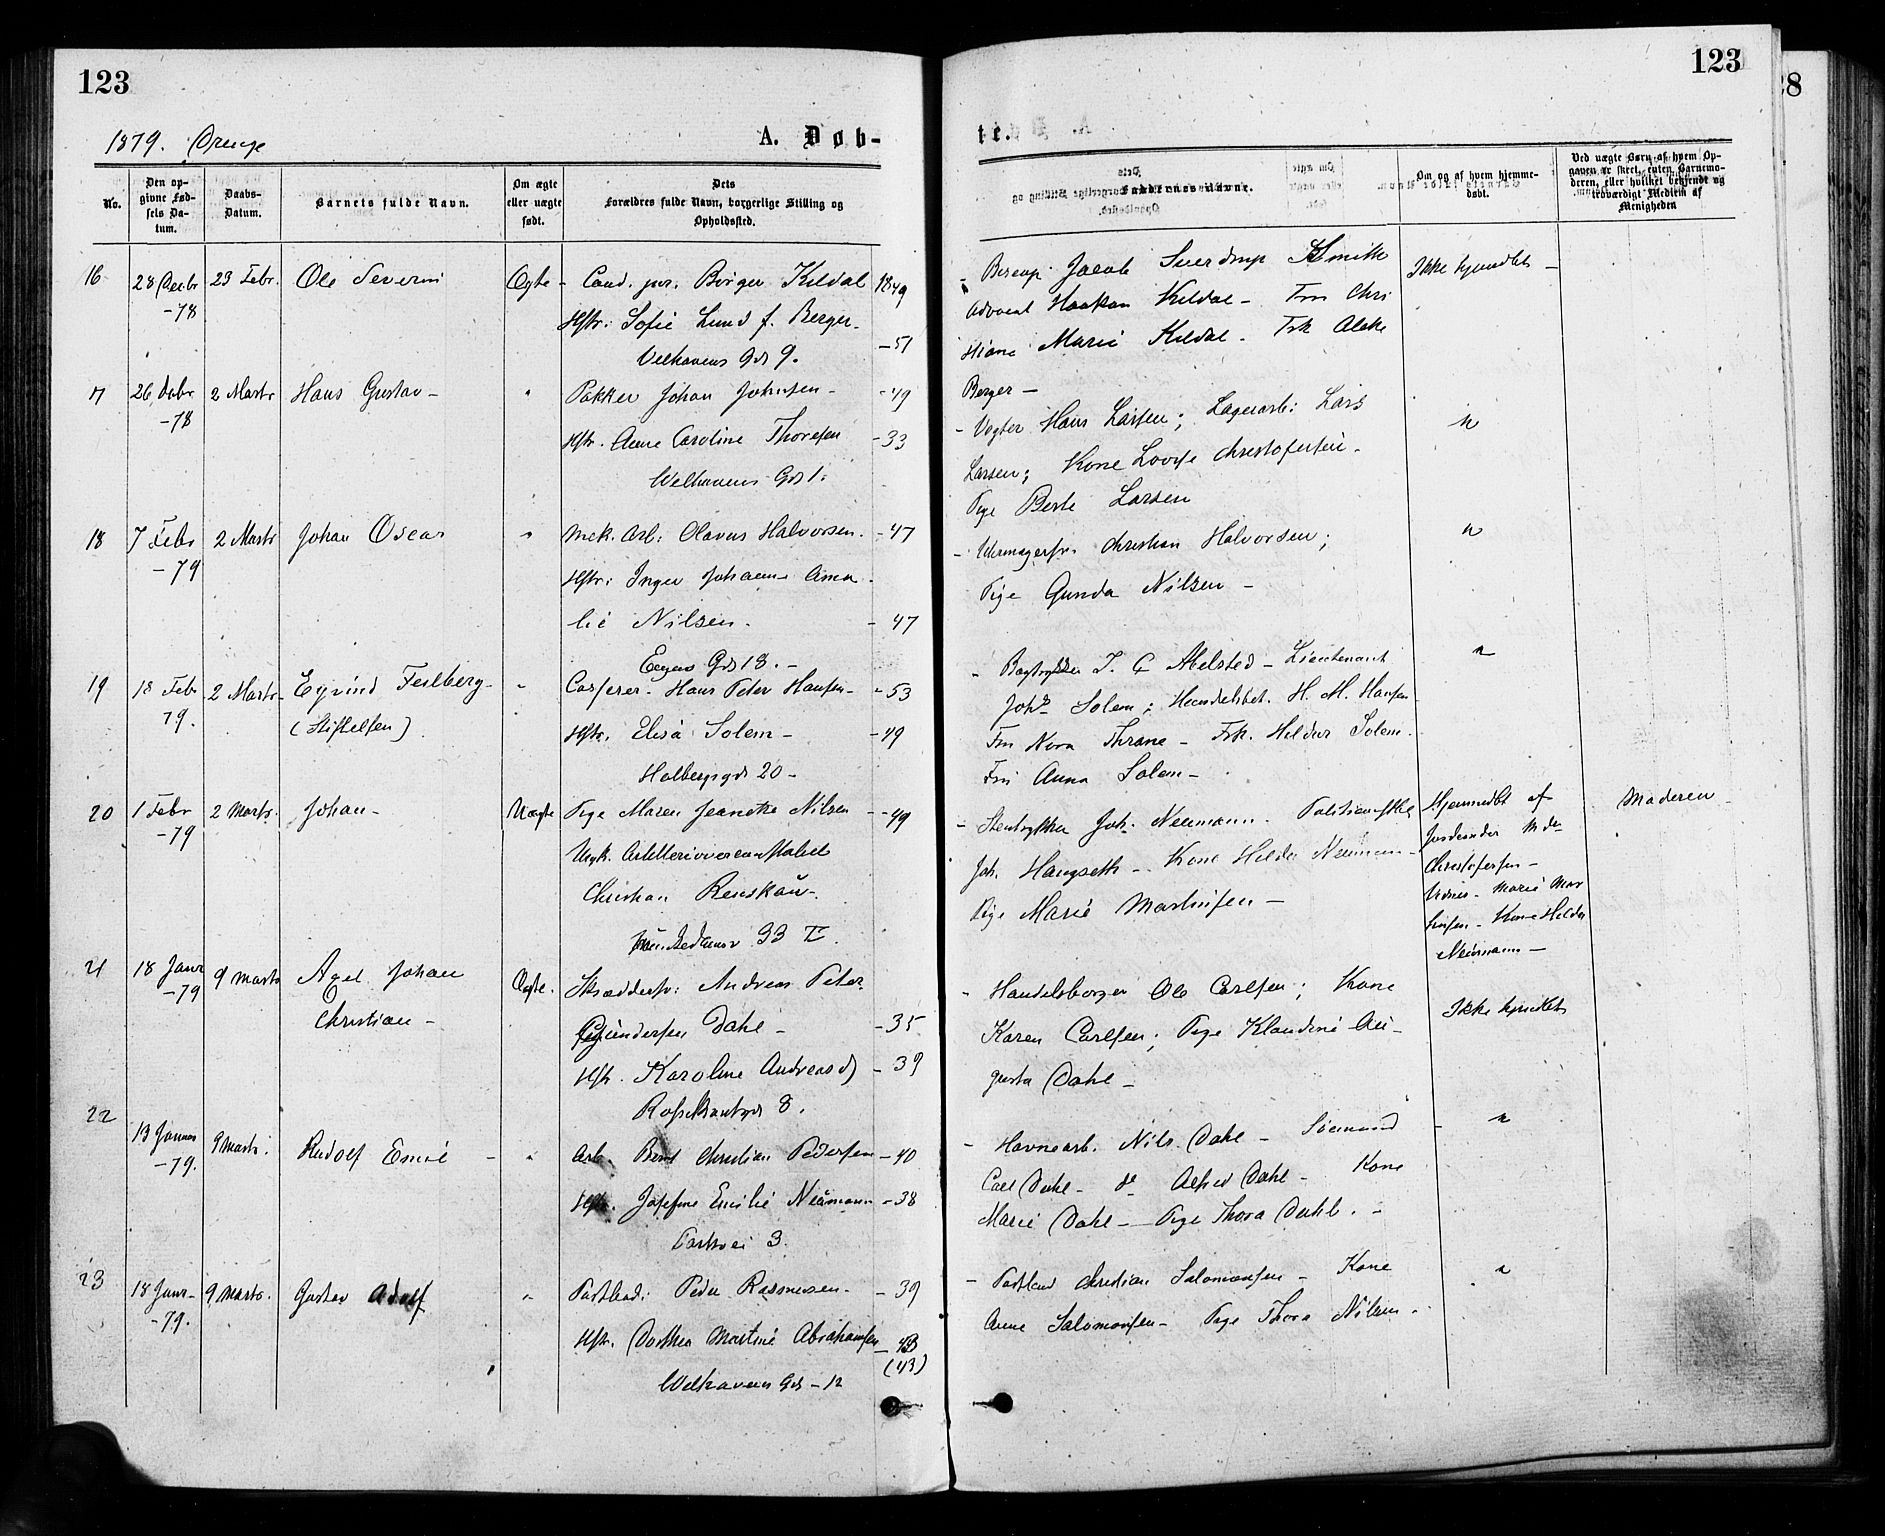 123
1879. Drenge
A. Døb-
No.
Den op-
givne Fød-
sels Da-
tum.
Daabs-
Datum.
Barnets fulde Navn.
Om ægte
eller uægte
født.
Dets
Forældres fulde Navn, borgerlige Stilling og
Opholdssted.
16
28 Decbr
-78
23 Febr.
Ole Severin
Ægte -
Cand. jur. Birger Kildal 1849
Hstr: Sofie Lund f. Berger - 51
Velhavens Gd 9.
26 Decbr
-78
2 Marts
Hans Gustav -
Pakker Johan Johnsen - - 49
Hstr. Anne Caroline Thoresen - 33
Welhavens Gd 1.
18
7 Febr
-79
2 Marts
Johan Oscar
"
Mek. Arb: Olavus Halvorsen. - 47
Hstr: Inger Johanne Ama
lie Nilsen. - 47
Gd 18. -
19
18 Feb
79.
2 Marts
Eyvind Feilberg -
"
Casserer - Hans Peter Hansen - - 53
Hstr. Elisa Solem - - 49
Holbergsgd 20 -
20
1 Febr
-79
2 Marts.
Johan -
Uægte
Pige Maren Jeanette Nilsen - - 49
Christian Renskau -
33 II.
21
18 Janr
-79
9 Marts
Axel Johan
Christian -
Ægte.
Skrædders: Andreas Peter
Gundersen Dahl - - 35
Hstr. Karoline Andreasd - 39
Rosenkrantzgd 8.
22
13 Januar
-79.
9 Marts.
Rudolf Emil -
"
Arb. Bernt Christian Pedersen - 40
Hstr. Josefine Emilie Neumann - 38
Parkvei 3.
23
18 Janr -
-79.
9 Marts.
Gustav Adolf
"
Postbud: Peder Rasmussen. - 39
Hstr. Dorthea Martine Abrahamsen
(43)
Welhavens Gd - 12
123
28
te.
Faddernes Navne.
Om og af hvem hjemme-
døbt.
Ved uægte Børn af hvem Op-
gaven er skeet, enten Barnemo-
deren, eller hvilket bekjendt og
troværdigt Medlem af
Menigheden
Jacob Sverdrup Smith
Advocat Haakon Kildal - Fru Chri
stiane Marie Kildal - Frk
Berger -
Ikke hjemdbt -
- Vogter Hans Larsen; Lagerarb: Lars
Larsen; Kone Lovise Christofersen -
Pige Berte Larsen
"
- Uhrmagersv. Christian Halvorsen;
Pige Gunda Nilsen -
"
- Bogtrykker Abelsted - Lieutenant
Johs Solem; H. M. Hansen
Fru Nora Thrane - Frk. Hildur Solem.
Fru Anna Solem -
"
- Stentrykker Joh. Neumann - Politiconstbl
Joh. Haugseth - Kone Hilda Neumann -
Pige Marie Martinsen -
Hjemmedbt af
Christofersen -
Vidner - Marie Mar
tinsen - Kone Hilda
Neumann -
Moderen
- Handelsborger Ole Carlsen; Kone
Karen Carlsen; Pige Klaudine Au-
gusta Dahl -
Ikke hjmdbt
- Havnearb. Nils Dahl - Sömand -
Carl Dahl - do Alfred Dahl - Kone
Marie Dahl - Pige Thora Dahl. -
"
- Postbud Christian Salomonsen - Kone
Anne Salomonsen - Pige Thora Nilsen -
"